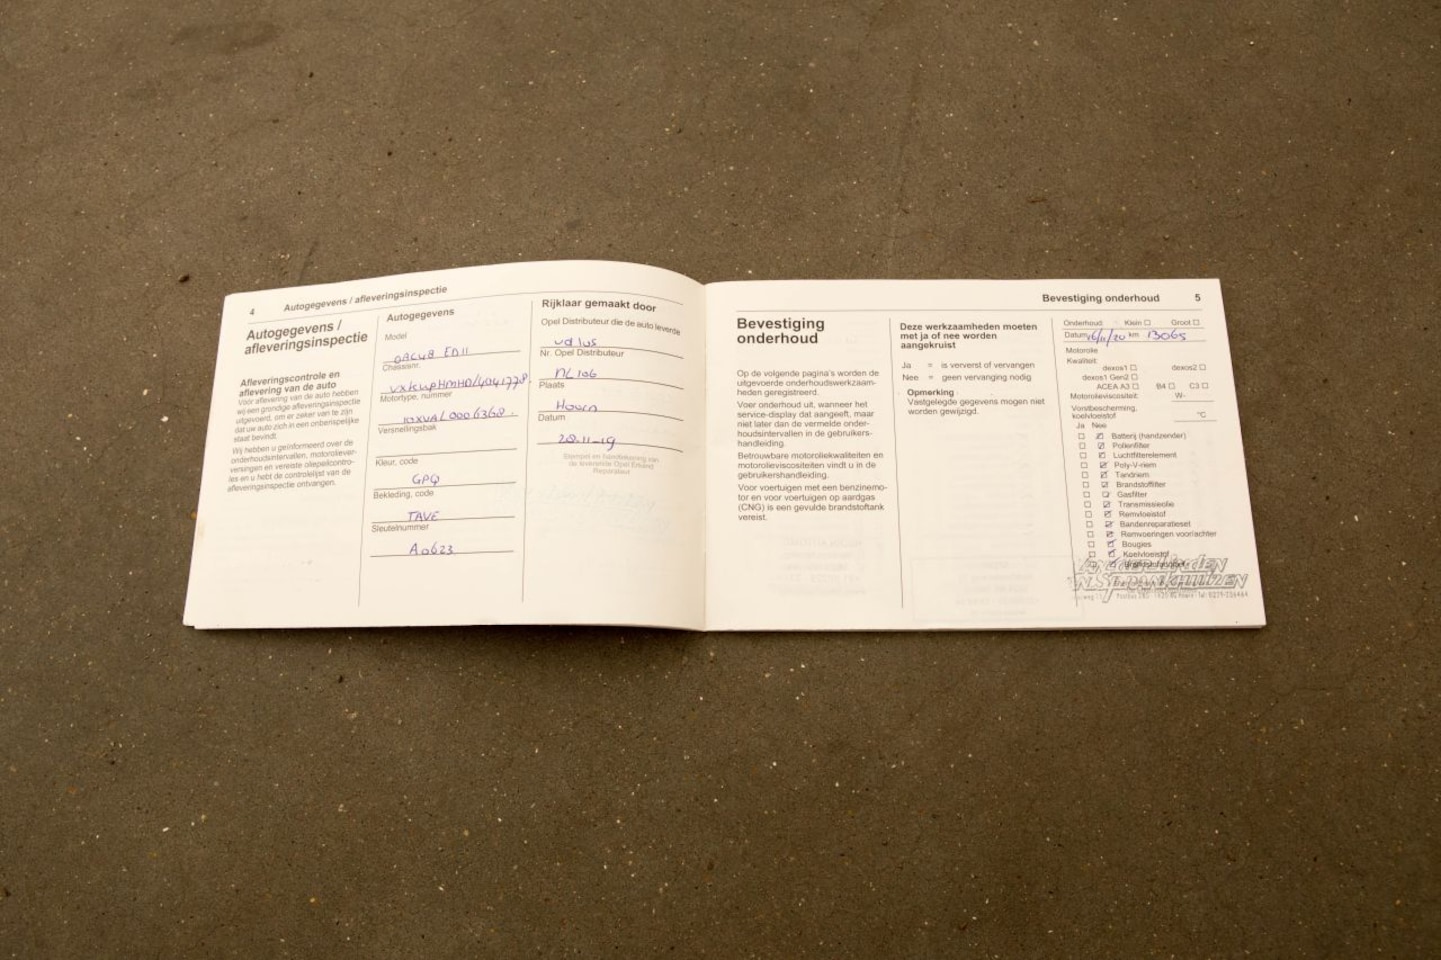 4 Autogegevens / afleveringsinspectie
Autogegevens /
afleveringsinspectie
Afleveringscontrole en
aflevering van de auto
Vóór aflevering van de auto hebben
wij een grondige afleveringsinspectie
uitgevoerd, om er zeker van te zijn
dat uw auto zich in een onberispelijke
staat bevindt.
Wij hebben u geïnformeerd over de
onderhoudsintervallen, motoroliever-
versingen en vereiste oliepeilcontro-
les en u hebt de controlelijst van de
afleveringsinspectie ontvangen.
Autogegevens
Model
Chassisnr.
Motortype, nummer
Versnellingsbak
Kleur, code
GPQ
Bekleding, code
TAVE
Sleutelnummer
A0623
Rijklaar gemaakt door
Opel Distributeur die de auto leverde
Nr. Opel Distributeur
NL 106
Plaats
Hoorn
Datum
28-11-19
Stempel en handtekening van
de leverende Opel Erkend
Reparateur
Bevestiging onderhoud 5
Bevestiging
onderhoud
Op de volgende pagina's worden de
uitgevoerde onderhoudswerkzaam-
heden geregistreerd.
Voer onderhoud uit, wanneer het
service-display dat aangeeft, maar
niet later dan de vermelde onder-
houdsintervallen in de gebruikers-
handleiding.
Betrouwbare motoroliekwaliteiten en
motorolieviscositeiten vindt u in de
gebruikershandleiding.
Voor voertuigen met een benzinemo-
tor en voor voertuigen op aardgas
(CNG) is een gevulde brandstoftank
vereist.
Deze werkzaamheden moeten
met ja of nee worden
aangekruist
Ja = is ververst of vervangen
Nee = geen vervanging nodig
Opmerking
Vastgelegde gegevens mogen niet
worden gewijzigd.
Onderhoud: Klein Groot
Datum 16/11/20 km 13065
Motorolie
Kwaliteit:
dexos1 dexos2
dexos1 Gen2
ACEA A3 B4 C3
Motorolieviscositeit: W-
Vorstbescherming,
koelvloeistof °C
Ja Nee
Batterij (handzender)
Pollenfilter
Luchtfilterelement
Poly-V-riem
Tandriem
Brandstoffilter
Gasfilter
Transmissieolie
Remvloeistof
Bandenreparatieset
Remvoeringen voor/achter
Bougies
Koelvloeistof